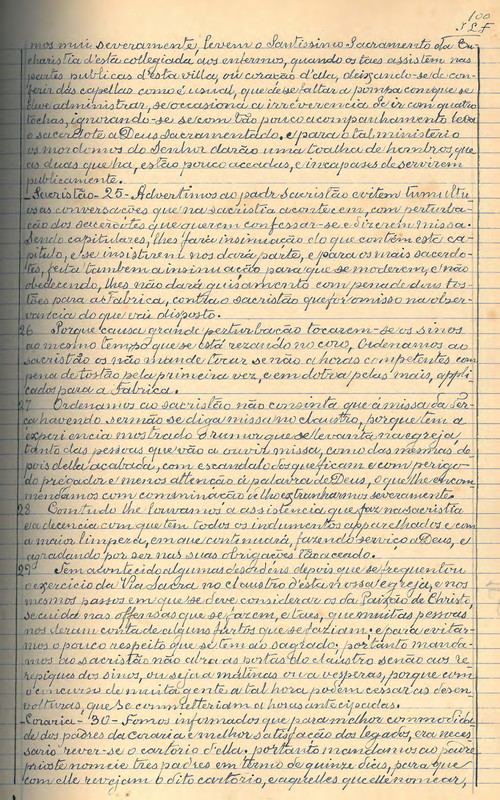 100
mos mui severamente, levem o Santissimo Sacramento da Eu-
charistia d'esta collegiada aos enfermos, quando os taes assistem nas
partes publicas d'esta villa, ou coração d'ella, deixando-se de con-
ferir das capellas como é usual, que de se faltar a pompa com que se
deve administrar, se occasiona a irreverencia de ir com quatro
tochas, ignorando-se se com tão pouco acompanhamento leva
o sacerdote a Deus Sacramentado. e para o tal ministerio
os mordomos do Senhor darão uma toalha de hombros que
as duas que ha, estão pouco acceadas, e incapases de servirem
publicamente.
Sacristão - 25 - Advertimos ao padre Sacristão evitem tumultu-
osas conversações que na sacristia acontecem, com perturba-
ção dos sacerdotes que querem confessar-se e dizerem missa.
Sendo capitulares, lhes fará insinuação do que contem este ca-
pitulo, e se insistirem nos dará parte, e para os mais sacerdo-
tes, feita tambem a insinuação para que se moderem, e não
obedecendo, lhes não dará guisamento com pena de dous tos-
tões para a Fabrica, contra o sacristão que for omisso na obser-
vancia do que vai disposto.
26 Porque causa grande perturbação tocarem-se os sinos
ao mesmo tempo que se está rezando no coro, Ordenamos ao
sacristão os não mande tocar senão a horas competentes com
pena de tostão pela primeira vez, e em dobro pelas mais, appli-
cados para a Fabrica.
27 Ordenamos ao sacristão não consinta que á missa da Ter-
ça havendo sermão se diga missa no claustro, porque tem a
experiencia mostrado o rumor que se levanta na egreja,
tanto das pessoas que vão a ouvir missa, como das mesmas de-
pois d'ella acabada, com escandalo dos que ficam e com perigo
do prégador e menos attenção á palavra de Deus, o que lhe encom-
mendamos com comminação de lho extranharmos severamente.
28 Comtudo lhe louvamos a assistencia que faz na sacristia
e a decencia com que tem todos os indumentos apparelhados e com
a maior limpeza, em que continuará, fazendo serviço a Deus, e
agradando por ser nas suas obrigações tão aceado.
29 Tem acontecido algumas desordens depois que se frequentou
o exercicio da Via Sacra no claustro d'esta nossa egreja, e nos
mesmos passos em que se deve considerar os da Paixão de Christo,
se cuida nas offensas que se fazem, e taes, que muitas pessoas
nos deram conta de alguns furtos que se faziam. e para evitar-
mos o pouco respeito que se tem ao sagrado, portanto manda-
mos ao sacristão não abra as portas do claustro senão aos re-
repiques dos sinos, ou seja a matinas ou a vesperas, porque com
o concurso de muita gente a tal hora podem cessar as desen-
volturas, que se commetteriam a horas antecipadas.
Coraria - 30 - Fomos informados que para melhor commodida-
de dos padres da Coraria e melhor satisfação das legados, era neces-
sario rever-se o cartorio d'ella. portanto mandamos ao padre
prioste nomeie tres padres em termo de quinze dias, para que
com elle revejam o dito cartorio, e aquelles que elle nomear,